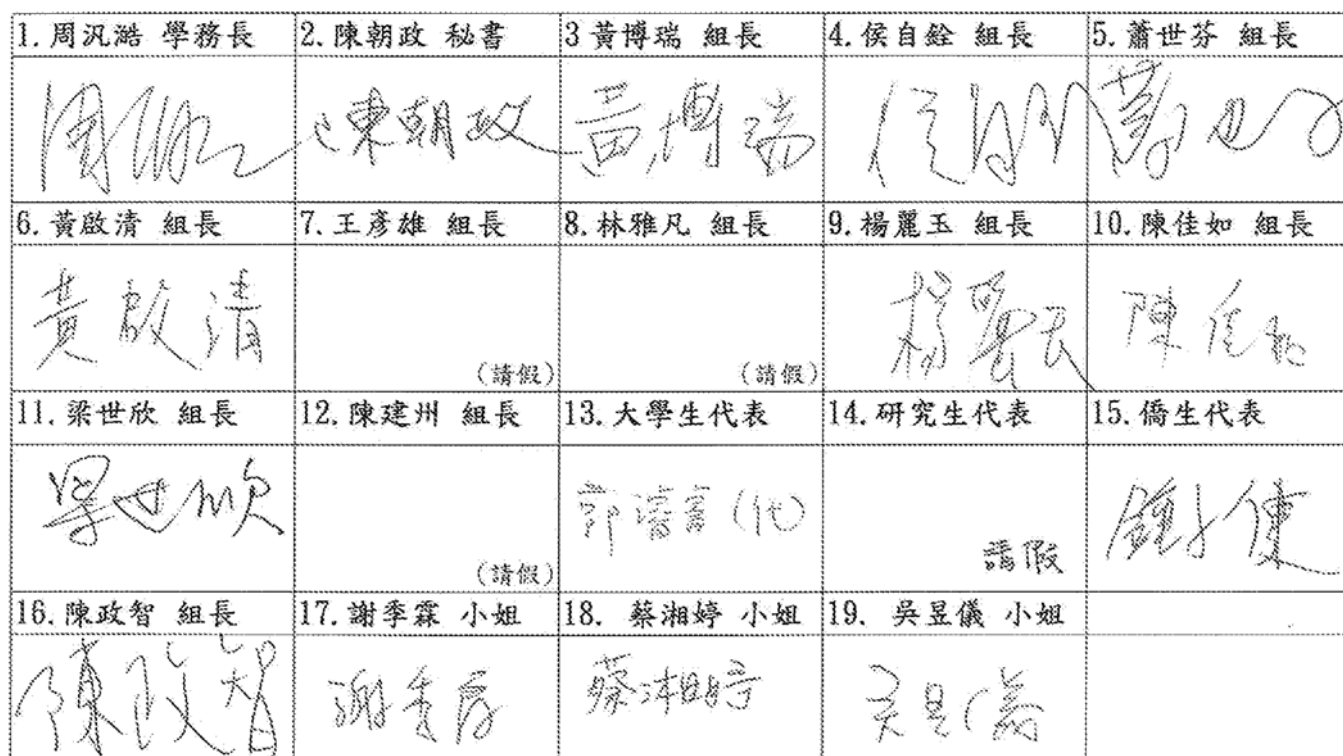 1.周汎澔 學務長 2.陳朝政 秘書 3 黃博瑞 組長 4.侯自銓 組長 5.蕭世芬 組長
陳朝政 黃博瑞
6.黃啟清 組長 7.王彥雄 組長 8.林雅凡 組長 9.楊麗玉 組長 10.陳佳如 組長
黃啟清 (請假) (請假) 楊麗玉 陳佳如
11.梁世欣 組長 12.陳建州 組長 13.大學生代表 14.研究生代表 15.僑生代表
梁世欣 (請假) (代) 請假
16.陳政智 組長 17.謝季霖 小姐 18. 蔡湘婷 小姐 19. 吳昱儀 小姐
陳政智 謝季霖 蔡湘婷 吳昱儀